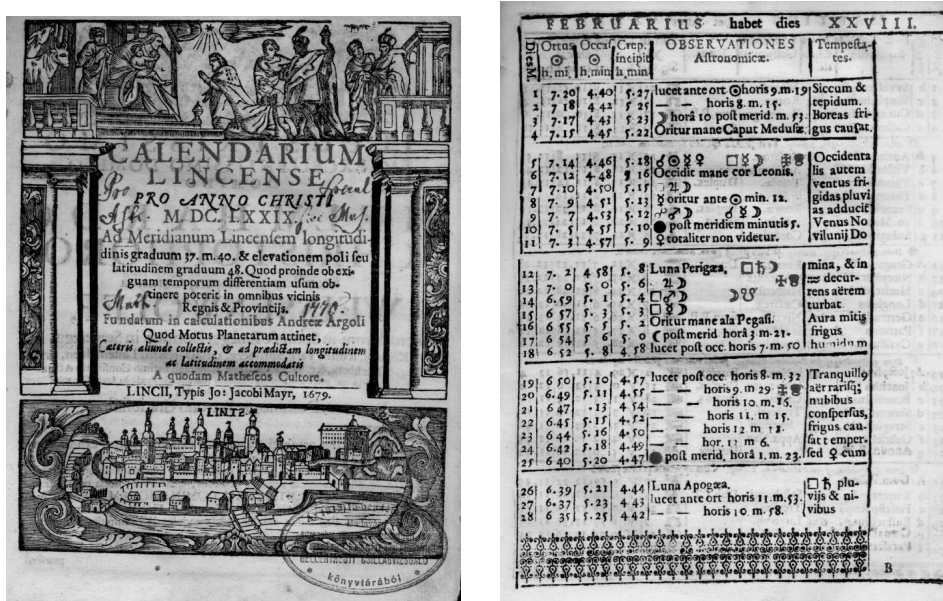 CALENDARIUM
LINCENSE
PRO ANNO CHRISTI
M. DC. LXXIX.
Ad Meridianum Lincensem longitudi-
dinis graduum 37. m. 40. & elevationem poli seu
latitudinem graduum 48. Quod proinde ob exi-
guam temporum differentiam usum ob-
stinere poterit in omnibus vicinis
Regnis & Provincijs.
Fundatum in calculationibus Andreæ Argoli
Quod Motus Planetarum attinet,
Cæteris aliunde collectis, & ad prædictam longitudinem
ac latitudinem accommodatis
A quodam Matheseos Cultore.
LINCII, Typis Jo: Jacobi Mayr, 1679.
LINTZ
könyvtárából
FEBRUARIUS habet dies XXVIII.
Dies M Ortus ☉ h. mi. Occas ☉ h. min Crep. incipit h. min OBSERVATIONES Astronomicæ. Tempesta- tes.
1 7. 20 4. 40 5. 27 lucet ante ort ☉ horis 9. m. 19 Siccum &
2 7 18 4 42 5 25 — — horis 8. m. 15. tepidum.
3 7. 17 4 43 5 23 ☽ horâ 10 post merid. m. 53. Boreas fri-
4 7. 15 4 45 5. 22 Oritur mane Caput Medusæ. gus causat.
5 7. 14 4. 46 5. 18 ☌ ☉ ☿ ♀ □ ☿ ☽ Occidenta
6 7. 12 4. 48 5 16 Occidit mane cor Leonis. lis autem
7 7. 10 4. 50 5. 15 ♃ ☽ ventus fri-
8 7. 9 4 51 5. 13 ☿ oritur ante ☉ min. 12. gidas pluvi
9 7. 7 4 53 5. 12 ☍ ♂ ☽ ☌ ☿ ☽ as adducit
10 7. 5 4 55 5. 10 ● post meridiem minutis 5. Venus No
11 7. 3 4. 57 5. 9 ♀ totaliter non videtur. vilunij Do
12 7. 2 4 58 5. 8 Luna Perigæa. □ ♄ ☽ mina, & in
13 7. 0 5. 0 5. 6 ♃ ☽ ♒ decur-
14 6. 59 5. 1 5. 4 □ ♂ ☽ ☽ ☋ rens aërem
15 6 57 5. 3 5. 3 □ ☿ ☽ turbat
16 6 55 5. 5 5. 2 Oritur mane ala Pegasi. Aura mitis
17 6 54 5. 6 5. 0 ☾ post merid horâ 3 m. 21. frigus
18 6 52 5. 8 4 58 lucet post occ. horis 7. m. 50 humidum
19 6 50 5. 10 4. 57 lucet post occ. horis 8. m. 32 Tranquillo
20 6. 49 5. 11 4. 55 — horis 9. m 29 aër rarisq;
21 6. 47 . 13 4 54 — — horis 10. m. 15. nubibus
22 6. 45 5. 15 4. 52 — — horis 11. m 15. conspersus,
23 6 44 5. 16 4. 50 — — horis 12 m frigus cau-
24 6. 42 5. 18 4. 49 — — hor. m 6. sat temper.
25 6 40 5. 20 4. 47 ● post merid. horâ 1. m. 23. sed ♀ cum
26 6. 39 5. 21 4. 44 Luna Apogæa. □ ♄ plu-
27 6. 37 5. 23 4 43 lucet ante ort horis 11. m. 53. vijs & ni-
28 6 35 5. 25 4 42 — — horis 10 m. 58. vibus
B